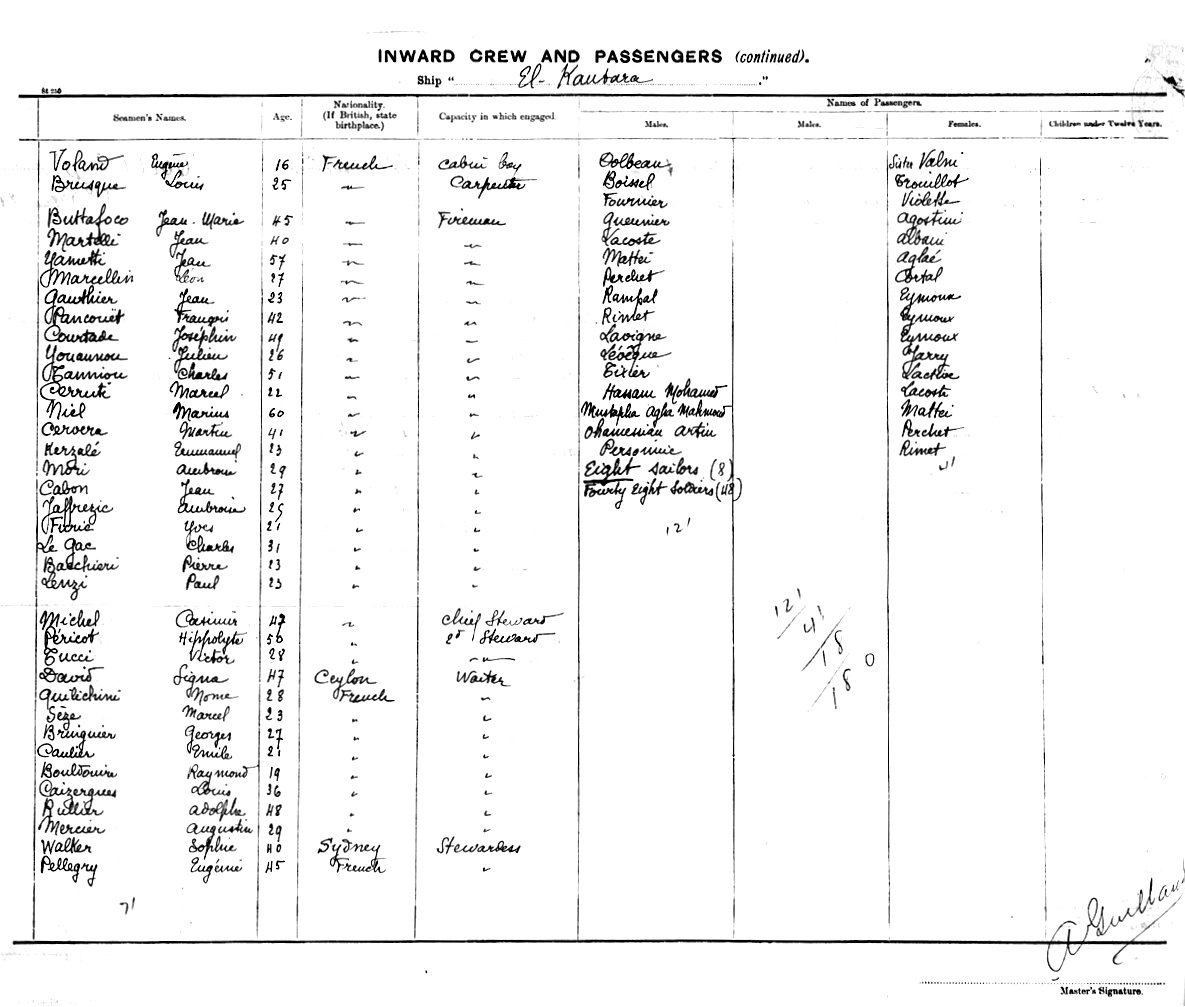 INWARD CREW AND PASSENGERS (continued).
Ship " El-Kantara "
Sl 250
Seamen's Names. Age. Nationality. (If British, state birthplace.) Capacity in which engaged. Names of Passengers.
Males. Males. Females. Children under Twelve Years.
Voland Eugène 16 French cabin boy Dolbeau Sister Valni
Brusque Louis 25 〃 Carpenter Boissel Trouillot
Fournier Violette
Buttafoco Jean-Marie 45 〃 Fireman Gueunier Agostini
Martelli Jean 40 〃 〃 Lacoste Albani
Yametti Jean 57 〃 〃 Mattei Aglaé
Marcellin Léon 27 〃 〃 Perchet Ortal
Gauthier Jean 23 〃 〃 Rampal Eymoux
Pancouët François 42 〃 〃 Rimet Eymoux
Courtade Joséphin 49 〃 〃 Lavigne Eymoux
Youannou Julien 26 〃 〃 Lévêque Jarry
Tanniou Charles 51 〃 〃 Tixier Lactive
Cerruti Marcel 22 〃 〃 Hassam Mohamed Lacoste
Niel Marius 60 〃 〃 Mustapha Agha Mahmoud Mattei
Cervera Martin 41 〃 〃 Ohamessian Artin Perchet
Kerzalé Emmanuel 23 〃 〃 Personnie Rimet
Mori Ambroise 29 〃 〃 Eight Sailors (8) 41
Cabon Jean 27 〃 〃 Fourty Eight Soldiers (48)
Jaffrezic Ambroise 25 〃 〃
Yves 21 〃 〃 121
Le Gac Charles 31 〃 〃
Baschieri Pierre 23 〃 〃
Lenzi Paul 23 〃 〃
Michel Casimir 47 〃 Chief Steward 121
Péricot Hippolyte 50 〃 2d Steward 41
Tucci Victor 28 〃 〃 18
David Signa 47 Ceylon Waiter 180
Quilichini Nome 28 French 〃
Sèze Marcel 23 〃 〃
Bringuier Georges 27 〃 〃
Caulier Emile 21 〃 〃
Bouldouire Raymond 19 〃 〃
Caizergues Louis 36 〃 〃
Rullier Adolphe 48 〃 〃
Mercier Augustin 29 〃 〃
Walker Sophie 40 Sydney Stewardess
Pellegry Eugénie 45 French 〃
71
A Guilland
Master's Signature.